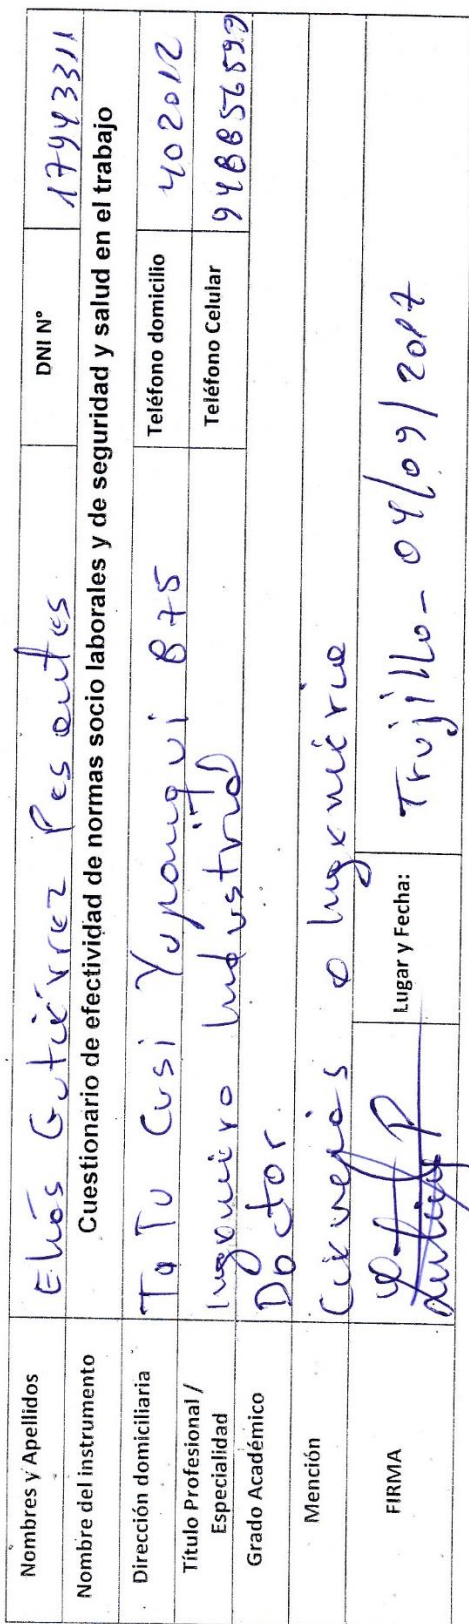 Nombres y Apellidos Elías Gutiérrez Pesantes DNI N° 17943311
Nombre del instrumento Cuestionario de efectividad de normas socio laborales y de seguridad y salud en el trabajo
Dirección domiciliaria Tu Tu Cusi Yupanqui B75 Teléfono domicilio 402012
Título Profesional / Especialidad Ingeniero Industrial Teléfono Celular
Grado Académico Doctor
Mención Ciencias e Ingeniería
FIRMA Lugar y Fecha: Trujillo - 04/09/2017